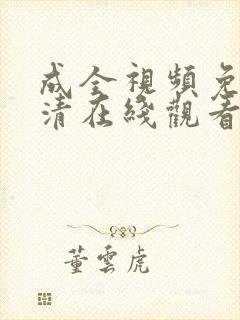 成全視頻免
清在綫觀看
董雲虎